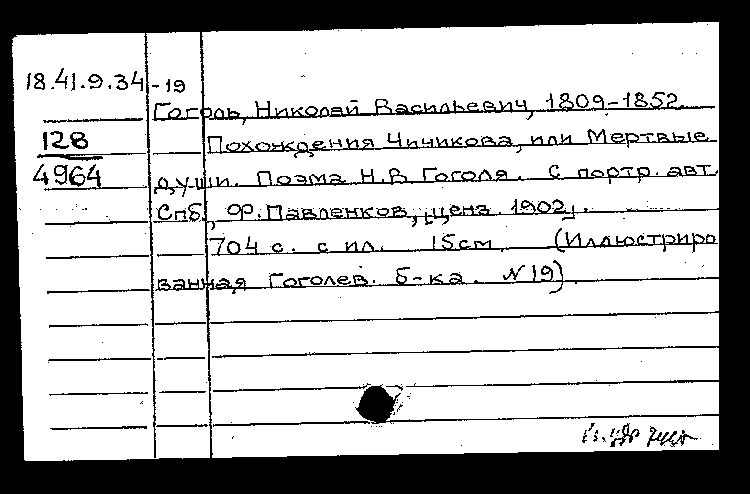 18.41.9.34-19
Гоголь, Николай Васильевич, 1809-1852
128
Похождения Чичикова, или Мертвые
4964
души. Поэма Н.В. Гоголя. С портр. авт.
Спб., Ф. Павленков, [ценз. 1902].
704 с. с ил. 15см (Иллюстриро
ванная Гоголев. б-ка. №19).